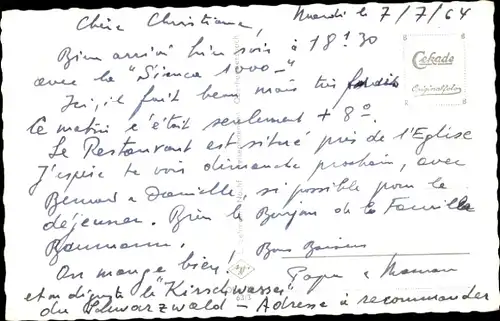 Chère Christiane, Mardi le 7/7/64
Bien arrivé hier soir à 18h30
avec la "Simca 1000-"
Ici, il fait beau mais très froid
Cekade
Originalfoto
le matin c'était seulement + 8°.
Le Restaurant est situé près de l'Eglise
J'espère te voir dimanche prochain, avec
Bernard & Danielle, si possible pour le
déjeuner. Bien le Bonjour de la Famille
Baumann.
Bons Baisers
On mange bien!
Papa & Maman
et on déguste le "Kirschwasser"
du Schwarzwald - Adresse à recommander